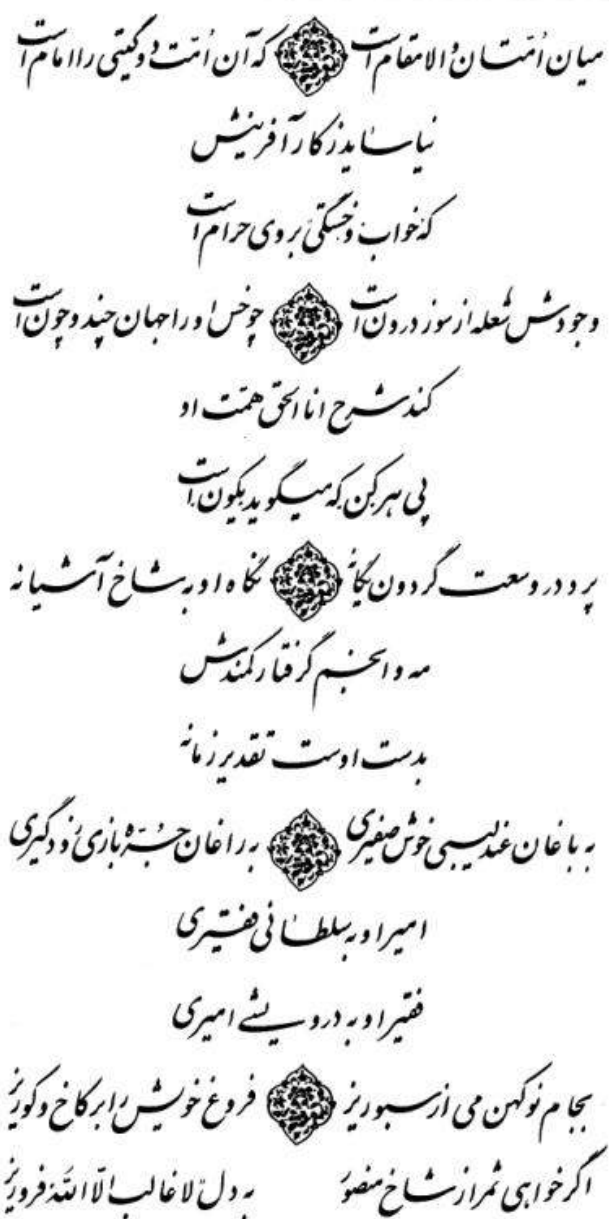 میان اُمتان والا مقام است که آن اُمت دو گیتی را امام است
نیاساید ز کار آفرینش
که خواب و خستگی بروی حرام است
وجودش شعله از سوز درون است چو خس او را جهان چند و چون است
کند شرح انا الحق همت او
پی هر کن که میگوید یکون است
پرد در وسعت گردون یگانه نگاه او به شاخ آشیانه
مه و انجم گرفتار کمندش
بدست اوست تقدیر زمانه
به باغان عندلیبی خوش صفیری به راغان جُرّه بازی زود گیری
امیر او به سلطانی فقیری
فقیر او به درویشی امیری
بجام نو کهن می از سبو ریز فروغ خویش را بر کاخ و کو ریز
اگر خواهی ثمر از شاخ منصور به دل لا غالب الا الله فرو ریز